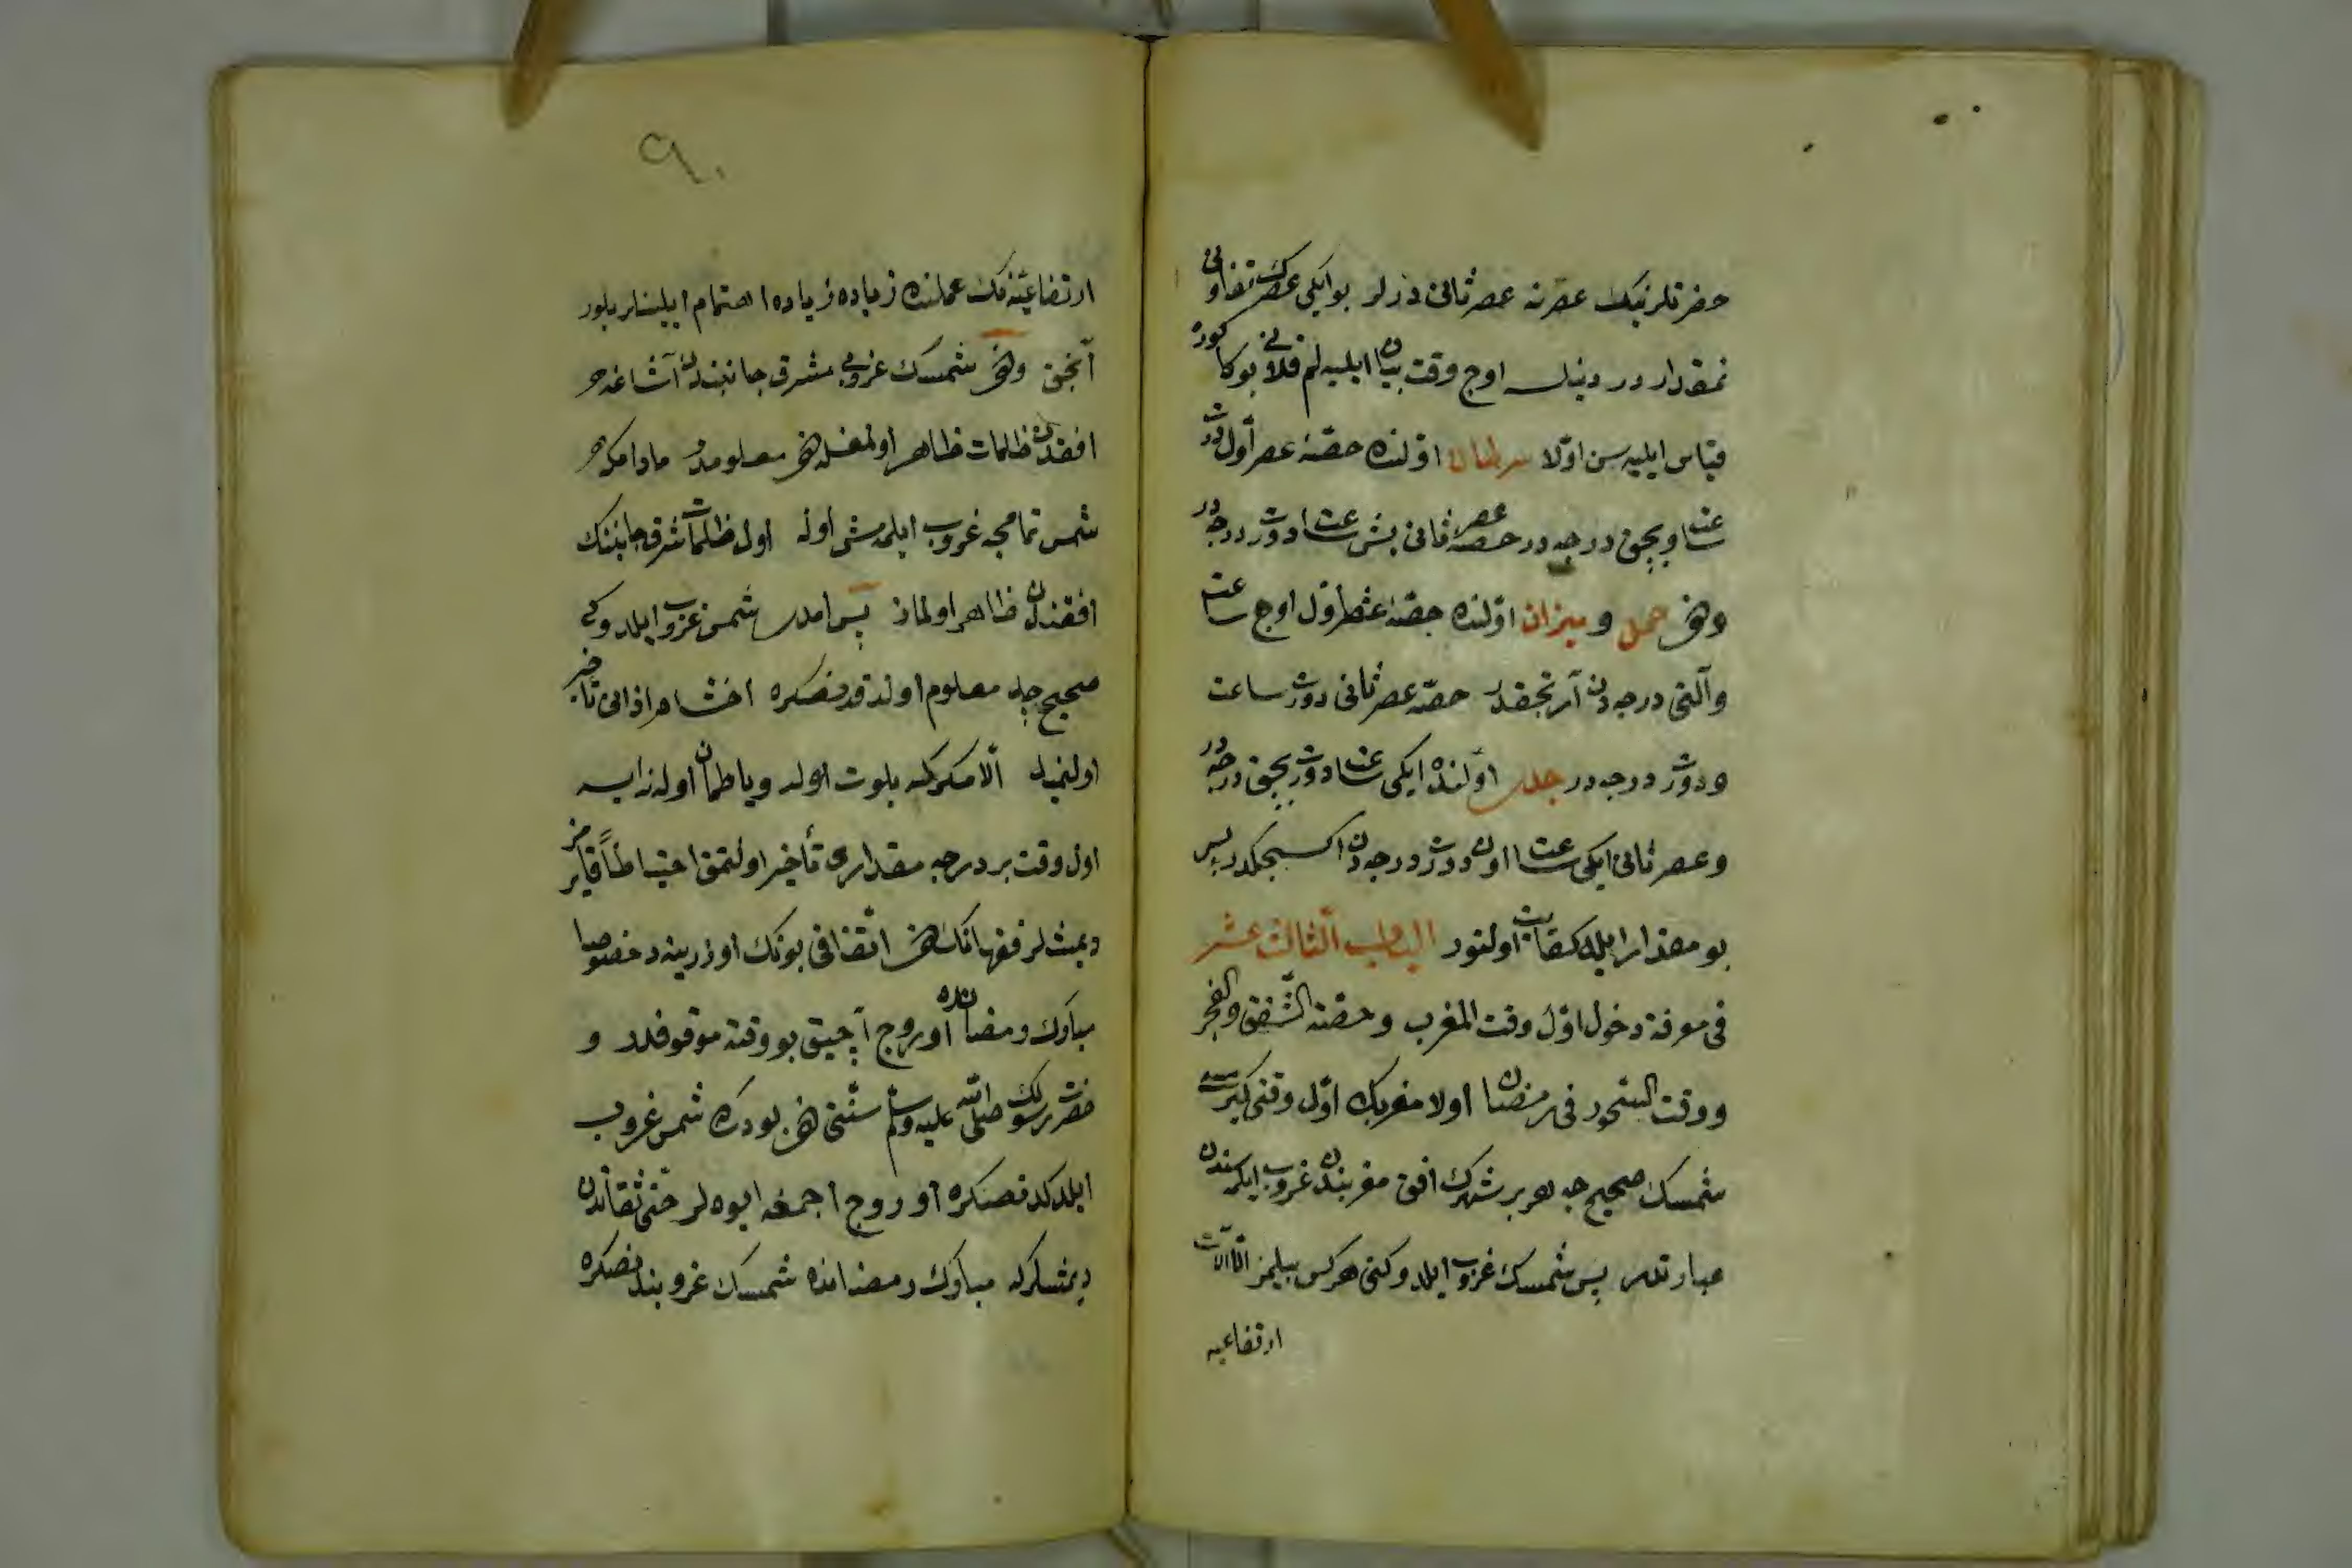 حضرتلرنیك عصرنه عصر ثانی دزلر بو ایكی عصرك تفاوتی
نمقدار در دیناسه اوج وقت بیان ایلیه لم قلانی بوكا كوره
قیاس ایلیه سن اوّلا سرطان اوّلنده حصّۀ عصر اوّل دورت
ساعت اون بچق درجه در حصۀ عصر ثانی بش ساعت دورت درجه در
ودخی حمل و میزان اوّلنده حصّۀ عصر اوّل اوج ساعت
وآلتی درجه دن آرتجقدر حصّۀ عصر ثانی دورت ساعت
ودورت درجه در جدی اوّلنده ایكی ساعت دورت بچق درجه در
وعصر ثانی ایكی ساعت اون دورت درجه دن اكسیجكدر پس
بو مقدار ایله كفایت اولنور الباب الثالث عشر
فی معرفة دخول اوّل وقت المغرب وحصّة الشّفق والفجر
ووقت السّحور فی رمضان اولا مغربك اوّل وقتی
شمسك صحیح جه هر بر شهرك افق مغربندن غروب ایلمسندن
عبارتدر پس شمسك غروب ایلدوكنی هر كس بیلمز الّا آلات
ارتفاعیه
٩٠
ارتفاعیّه نك عملنده زیاده زیاده اهتمام ایلینلر بلور
آنجق ودخی شمسك غروبی مشرق جانبندن آشاغه
افقدن ظلمات ظاهر اولمغله دخی معلومدر مادامكه
شمس تمامجه غروب ایلمه مش اوله اول ظلمات شرق جانبنك
افقندن ظاهر اولماز پس ایمدی شمس غروب ایلدوكی
صحیح جه معلوم اولدقدنصكره اخشام اذانی تأخیر
اولنمیه الّا مكر كه بلوت اوله ویا طمان اوله زایسه
اول وقت بر درجه مقداری تأخیر اولنمق احتیاطاً
دیمشلر فقهانك دخی اتّفاقی بونك اوزرینه در خصوصا
مبارك رمضانده اوروج آچیق بو وقته موقوفدر و
حضرت رسولك صلی الله علیه وسلم سنّتی دخی بودركه شمس غروب
ایلدكدنصكره اوروج آچمغه ایوه لر حتّی ثقاتدن
دیمشلركه مبارك رمضانده شمسك غروبندنصكره